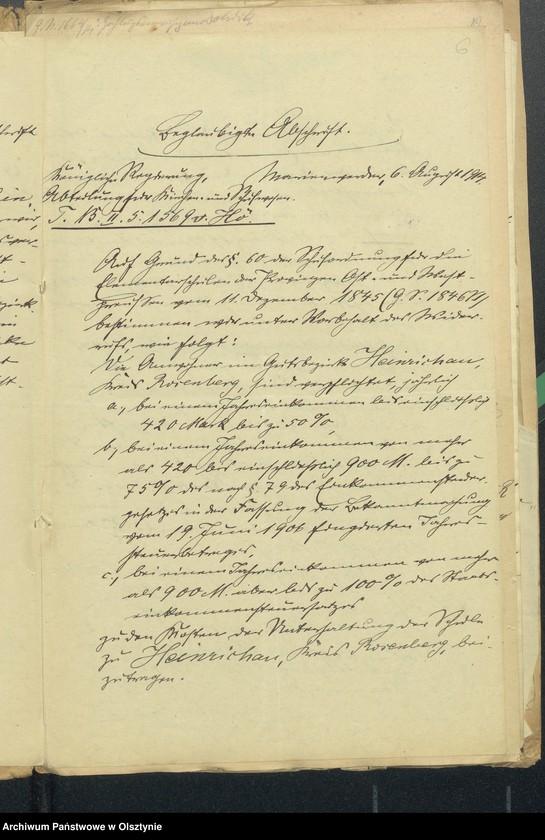 6
Beglaubigte Abschrift.
Königliche Regierung, Marienwerder, 6. August 1914.
Abteilung für Kirchen und Schulwesen.
T. B. II. 5. 1569 v. Hö.
Auf Grund des §. 60 der Schulordnung für die
Elementarschulen der Provinzen Ost- und West-
preußen vom 11. Dezember 1845 (G. S. 1846
bestimmen wir unter Vorbehalt des Wider-
rufs, wie folgt:
Die Anwohner im Gutsbezirk Heinrichau,
Kreis Rosenberg, sind verpflichtet, jährlich
a., bei einem Jahreseinkommen bis einschließlich
420 Mark bis zu 50%,
b., bei einem Jahreseinkommen von mehr
als 420 bis einschließlich 900 M. bis zu
75% des nach § 79 des Einkommensteuer-
gesetzes in der Fassung der Bekanntmachung
vom 19. Juni 1906 fingierten Jahres-
steuerbetrages,
c., bei einem Jahreseinkommen von mehr
als 900 M. aber bis zu 100% des Staats-
einkommensteuersatzes
zu den Kosten der Unterhaltung der Schule
zu Heinrichau, Kreis Rosenberg, bei-
zutragen.
Archiwum Państwowe w Olsztynie